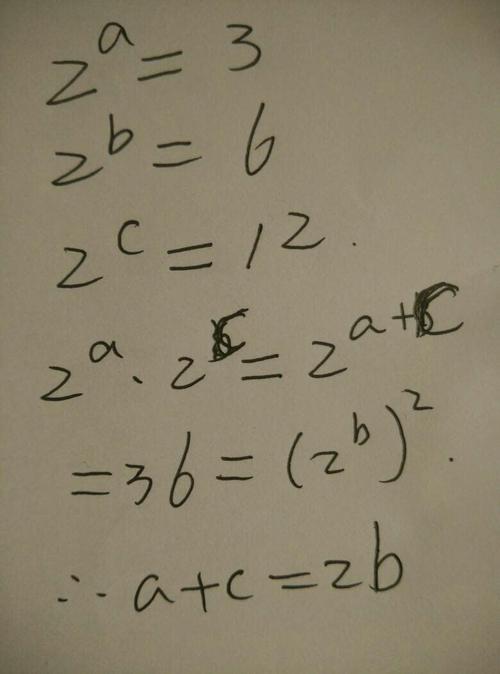 2^a = 3
2^b = 6
2^c = 12.
2^a · 2^c = 2^{a+c}
= 36 = (2^b)^2.
∴ a+c = 2b